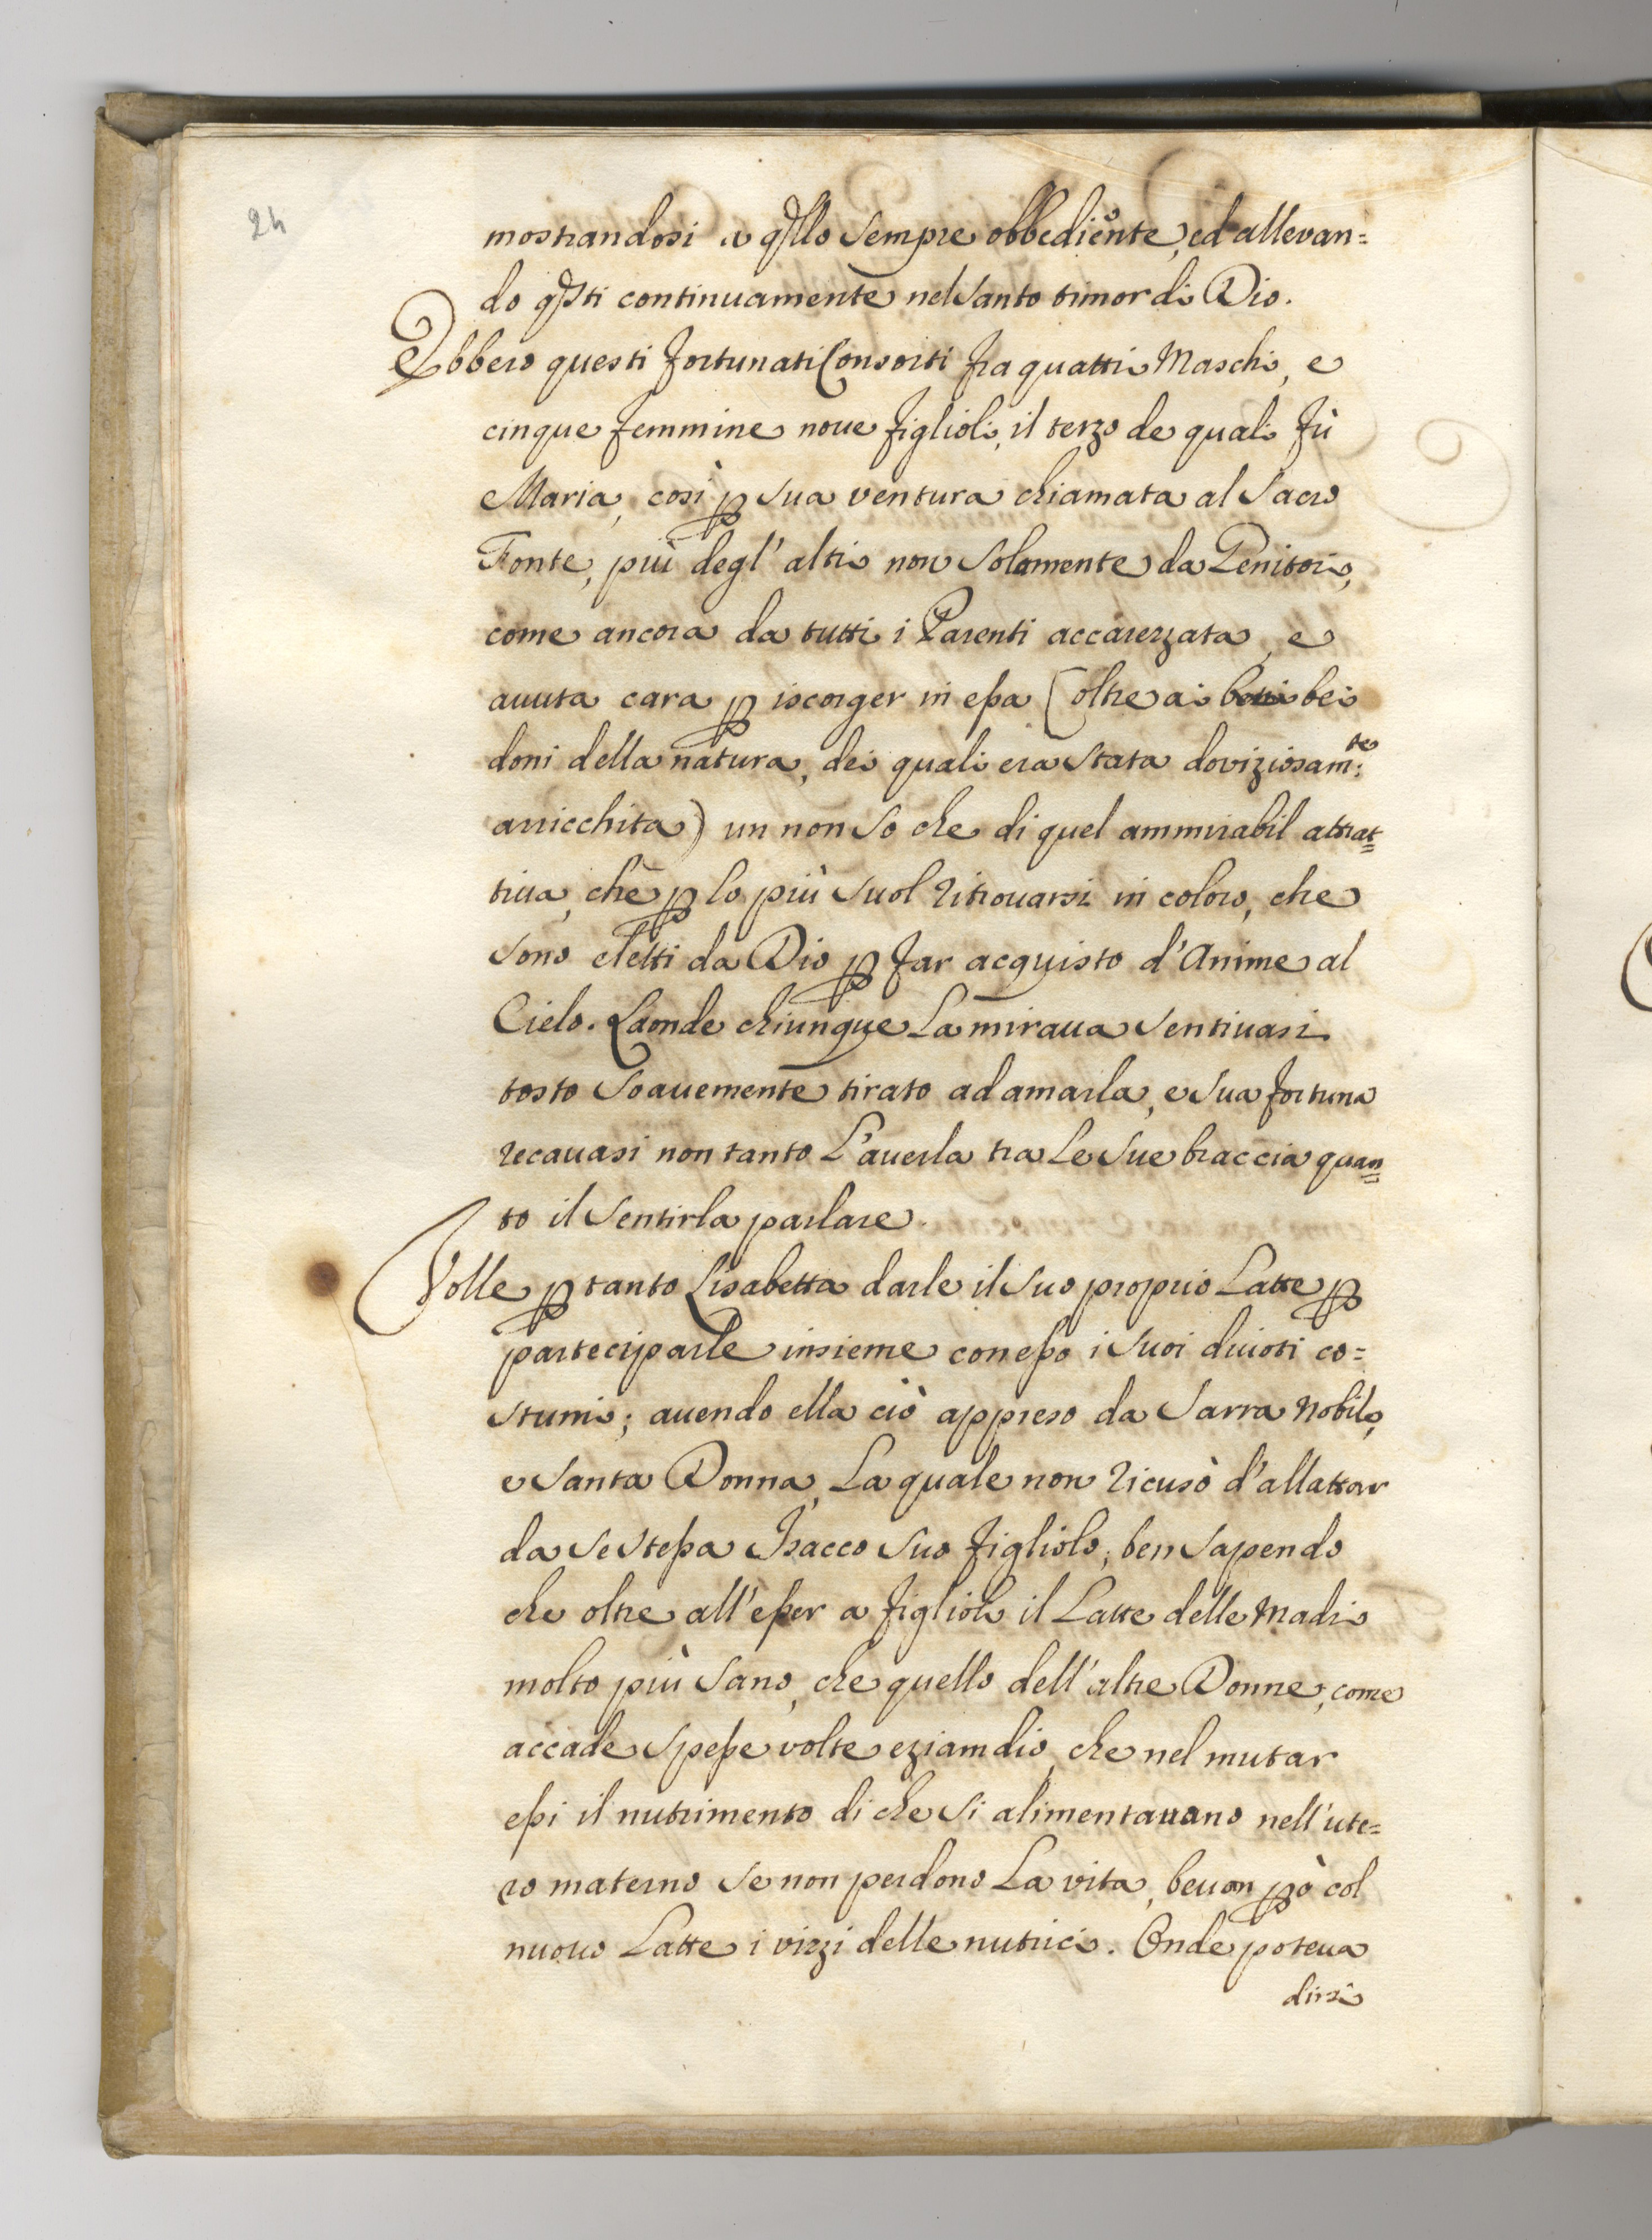 24
mostrandosi a qllo sempre obbediente, ed allevan=
do qsti continuamente nel santo timor di Dio.
Ebbero questi fortunati Consorti fra quattri Maschi, e
cinque femmine noue figlioli, il terzo de quali fù
Maria, così p sua ventura chiamata al sacro
Fonte, più degl' altri non solamente da Genitori,
come ancora da tutti i Parenti accarezzata, e
auuta cara p iscorger in eßa (oltre ai beni bei
doni della natura, dei quali era stata doviziosam:te
arricchita) un non so che di quel ammirabil attrat=
tiua, che p lo più suol ritrouarsi in coloro, che
sono eletti da Dio p far acquisto d'Anime al
Cielo. Laonde chiunque La miraua sentiuasi
tosto soauemente tirato ad amarla, e sua fortuna
recauasi non tanto L'auerla tra Le sue braccia quan=
to il sentirla parlare.
Volle p tanto Lisabetta darle il suo proprio Latte p
parteciparle insieme con eßo i suoi diuoti co=
stumi; auendo ella ciò appreso da Sarra Nobile,
e santa Donna, La quale non ricusò d'allattar
da se steßa Isacco suo figliolo; ben sapendo
che oltre all'eßer a figlioli il Latte delle Madri
molto più sano, che quello dell'altre Donne; come
accade speße volte eziamdio, che nel mutar
eßi il nutrimento di che si alimentauano nell'ute=
ro materno se non perdono La vita, beuon pò col
nuouo Latte i vizzi delle nutrici. Onde poteua
dirsi